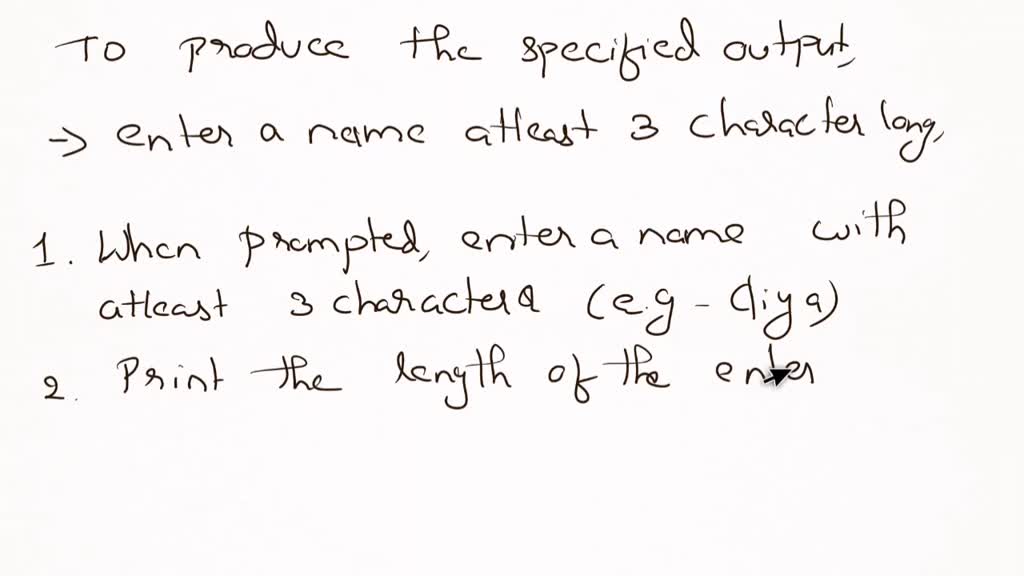 To produce the specified output,
→ enter a name atleast 3 character long,
1. When prompted, enter a name with
atleast 3 characters (e.g - diya)
2. Print the length of the enter